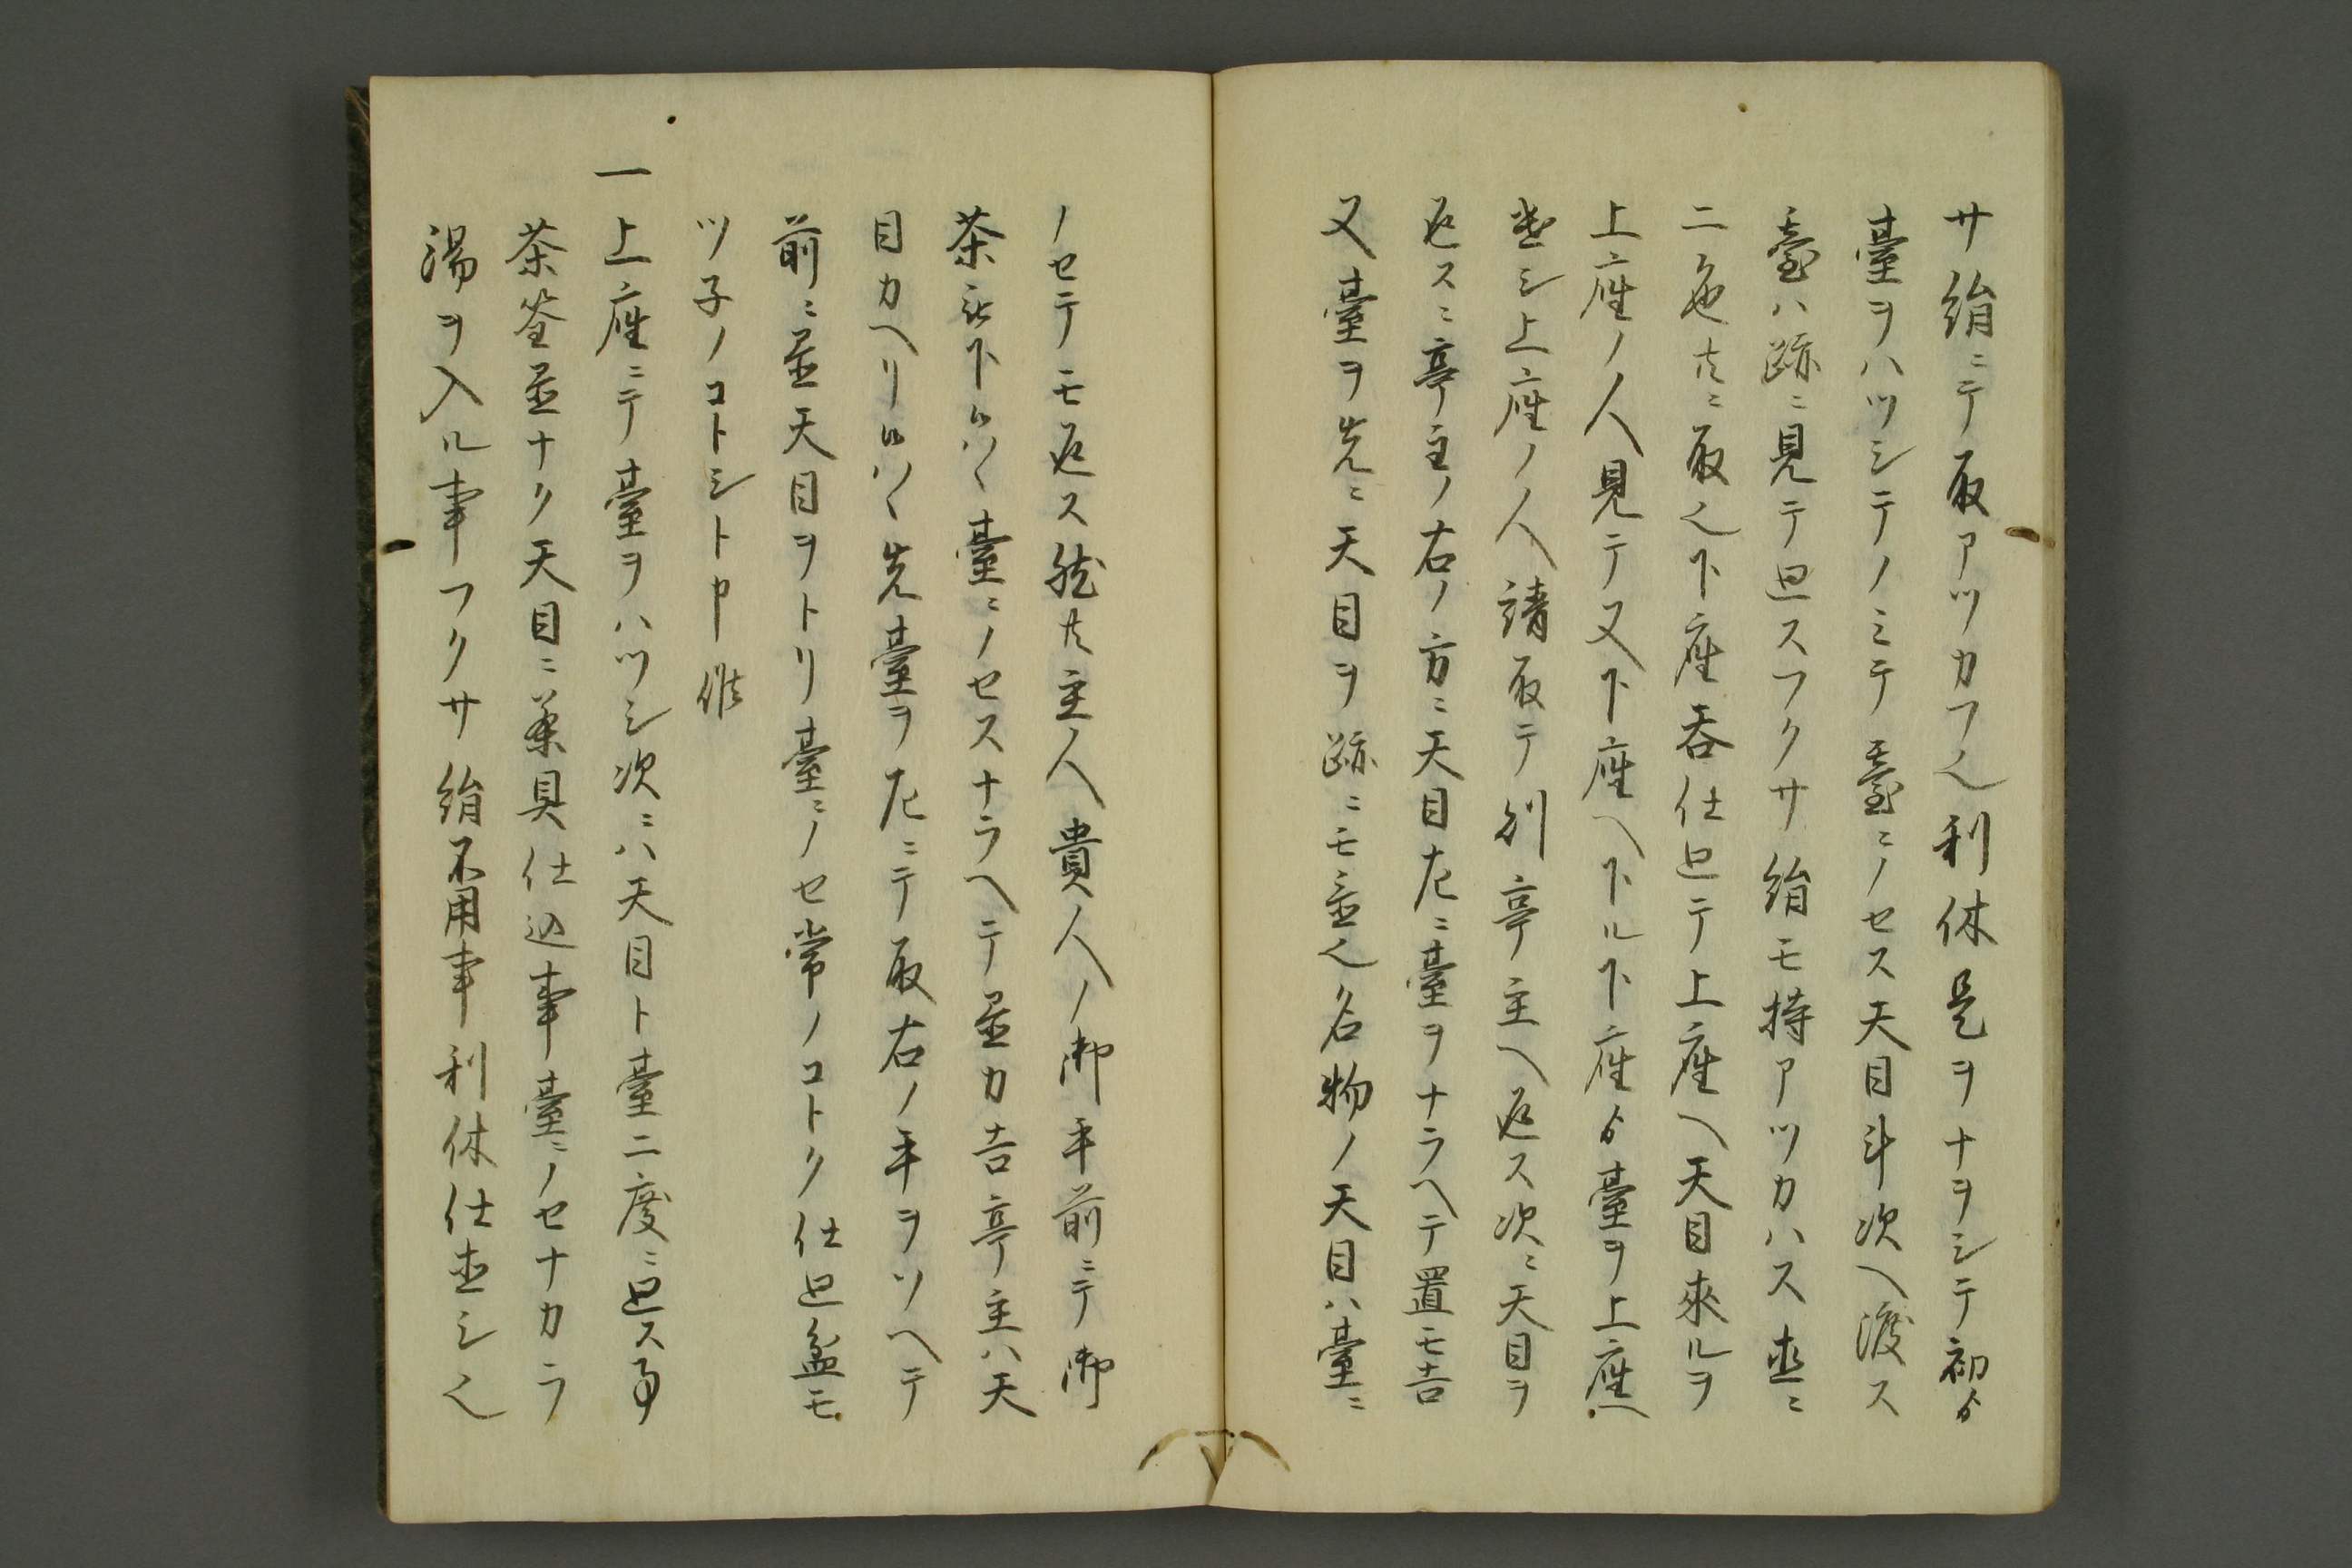 サ絹ニテ取アツカフ也利休是ヲナヲシテ初ゟ
臺ヲハツシテノミテ臺ニノセス天目斗次ヘ渡ス
臺ハ跡ニ見テ廻スフクサ絹モ持アツカハス直ニ
二色共ニ取也下座呑仕廻テ上座ヘ天目來ルヲ
上座ノ人見テ又下座ヘ下ル下座ゟ臺ヲ上座ヘ
遣シ上座ノ人請取テ則亭主ヘ返ス次ニ天目ヲ
返スニ亭主ノ右ノ方ニ天目左ニ臺ヲナラヘテ置モ吉
又臺ヲ先ニ天目ヲ跡ニモ置也名物ノ天目ハ臺ニ
ノセテモ返ス然共主人貴人ノ御手前ニテ御
茶被下候ハヽ臺ニノセスナラヘテ置カ吉亭主ハ天
目カヘリ候ハヽ先臺ヲ左ニテ取右ノ手ヲソヘテ
前ニ置天目ヲトリ臺ニノセ常ノコトク仕廻盆モ
ツ子ノコトシト申候
一上座ニテ臺ヲハツシ次ニハ天目ト臺二度ニ廻ス事
茶筌置ナク天目ニ茶具仕込事臺ニノセナカラ
湯ヲ入ル事フクサ絹不用事利休仕出シ也